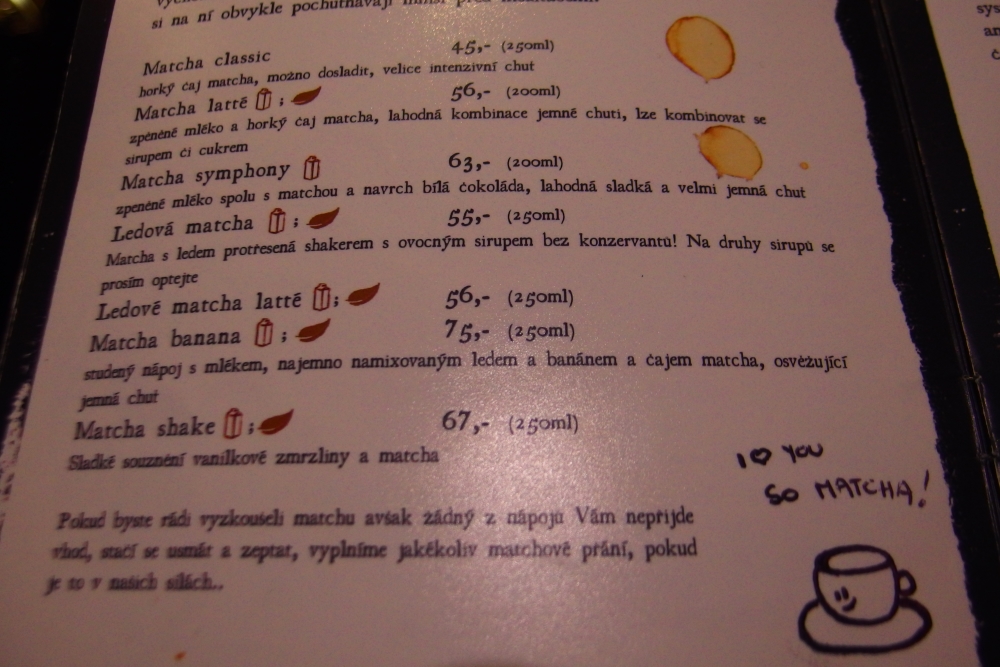 si na ní obvykle pochutnávají
Matcha classic 45,- (250ml)
horký čaj matcha, možno dosladit, velice intenzivní chuť
Matcha latté ; 56,- (200ml)
zpěněné mléko a horký čaj matcha, lahodná kombinace jemné chuti, lze kombinovat se
sirupem či cukrem
Matcha symphony 63,- (200ml)
zpeněné mléko spolu s matchou a navrch bílá čokoláda, lahodná sladká a velmi jemná chuť
Ledová matcha ; 55,- (250ml)
Matcha s ledem protřesená shakerem s ovocným sirupem bez konzervantů! Na druhy sirupů se
prosím optejte
Ledové matcha latté ; 56,- (250ml)
Matcha banana ; 75,- (250ml)
studený nápoj s mlékem, najemno namixovaným ledem a banánem a čajem matcha, osvěžující
jemná chuť
Matcha shake ; 67,- (250ml)
Sladké souznění vanilkové zmrzliny a matcha
Pokud byste rádi vyzkoušeli matchu avšak žádný z nápojů Vám nepřijde
vhod, stačí se usmát a zeptat, vyplníme jakékoliv matchové přání, pokud
je to v našich silách..
I ♡ YOU
SO MATCHA!